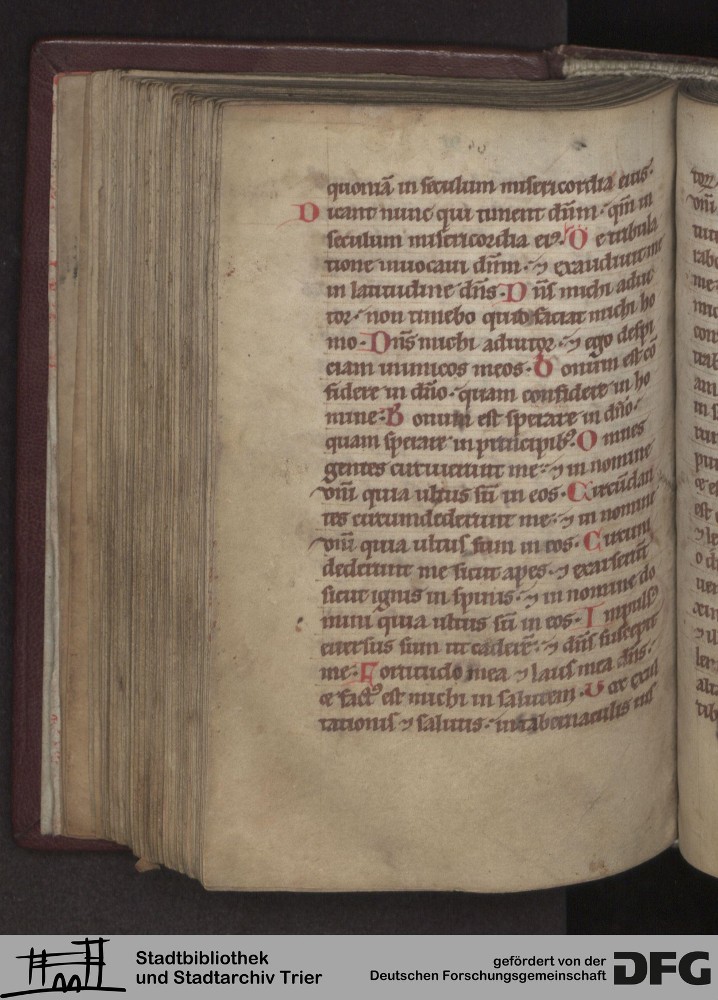 quoniā in seculum misericordia eius·
Dicant nunc qui timent dūm· qm̄ in
seculum misericordia ei9· De tribula
tione inuocaui dūm· ⁊ exaudiuit me
in latitudine dn̄s· Dn̄s michi adiu
tor· non timebo quid faciat michi ho
mo· Dn̄s michi adiutor· ⁊ ego despi
ciam inimicos meos· Bonum est cō
fidere in dn̄o· quam confidere in ho
mine· Bonum est sperare in dn̄o·
quam sperare in principib9· Omnes
gentes circuierunt me· ⁊ in nomine
dn̄i quia ultus sū in eos· Circūdan
tes circumdederunt me· ⁊ in nomine
dn̄i quia ultus sum in eos· Circum
dederunt me sicut apes· ⁊ exarserūt
sicut ignis in spinis· ⁊ in nomine do
mini quia ultus sū in eos· Impuls9
euersus sum ut caderē· ⁊ dn̄s suscepit
me· Fortitudo mea ⁊ laus mea dn̄s·
⁊ fact9 est michi in salutem· Vox exul
tationis ⁊ salutis· in tabernaculis ius
Stadtbibliothek
und Stadtarchiv Trier
gefördert von der
Deutschen Forschungsgemeinschaft
DFG